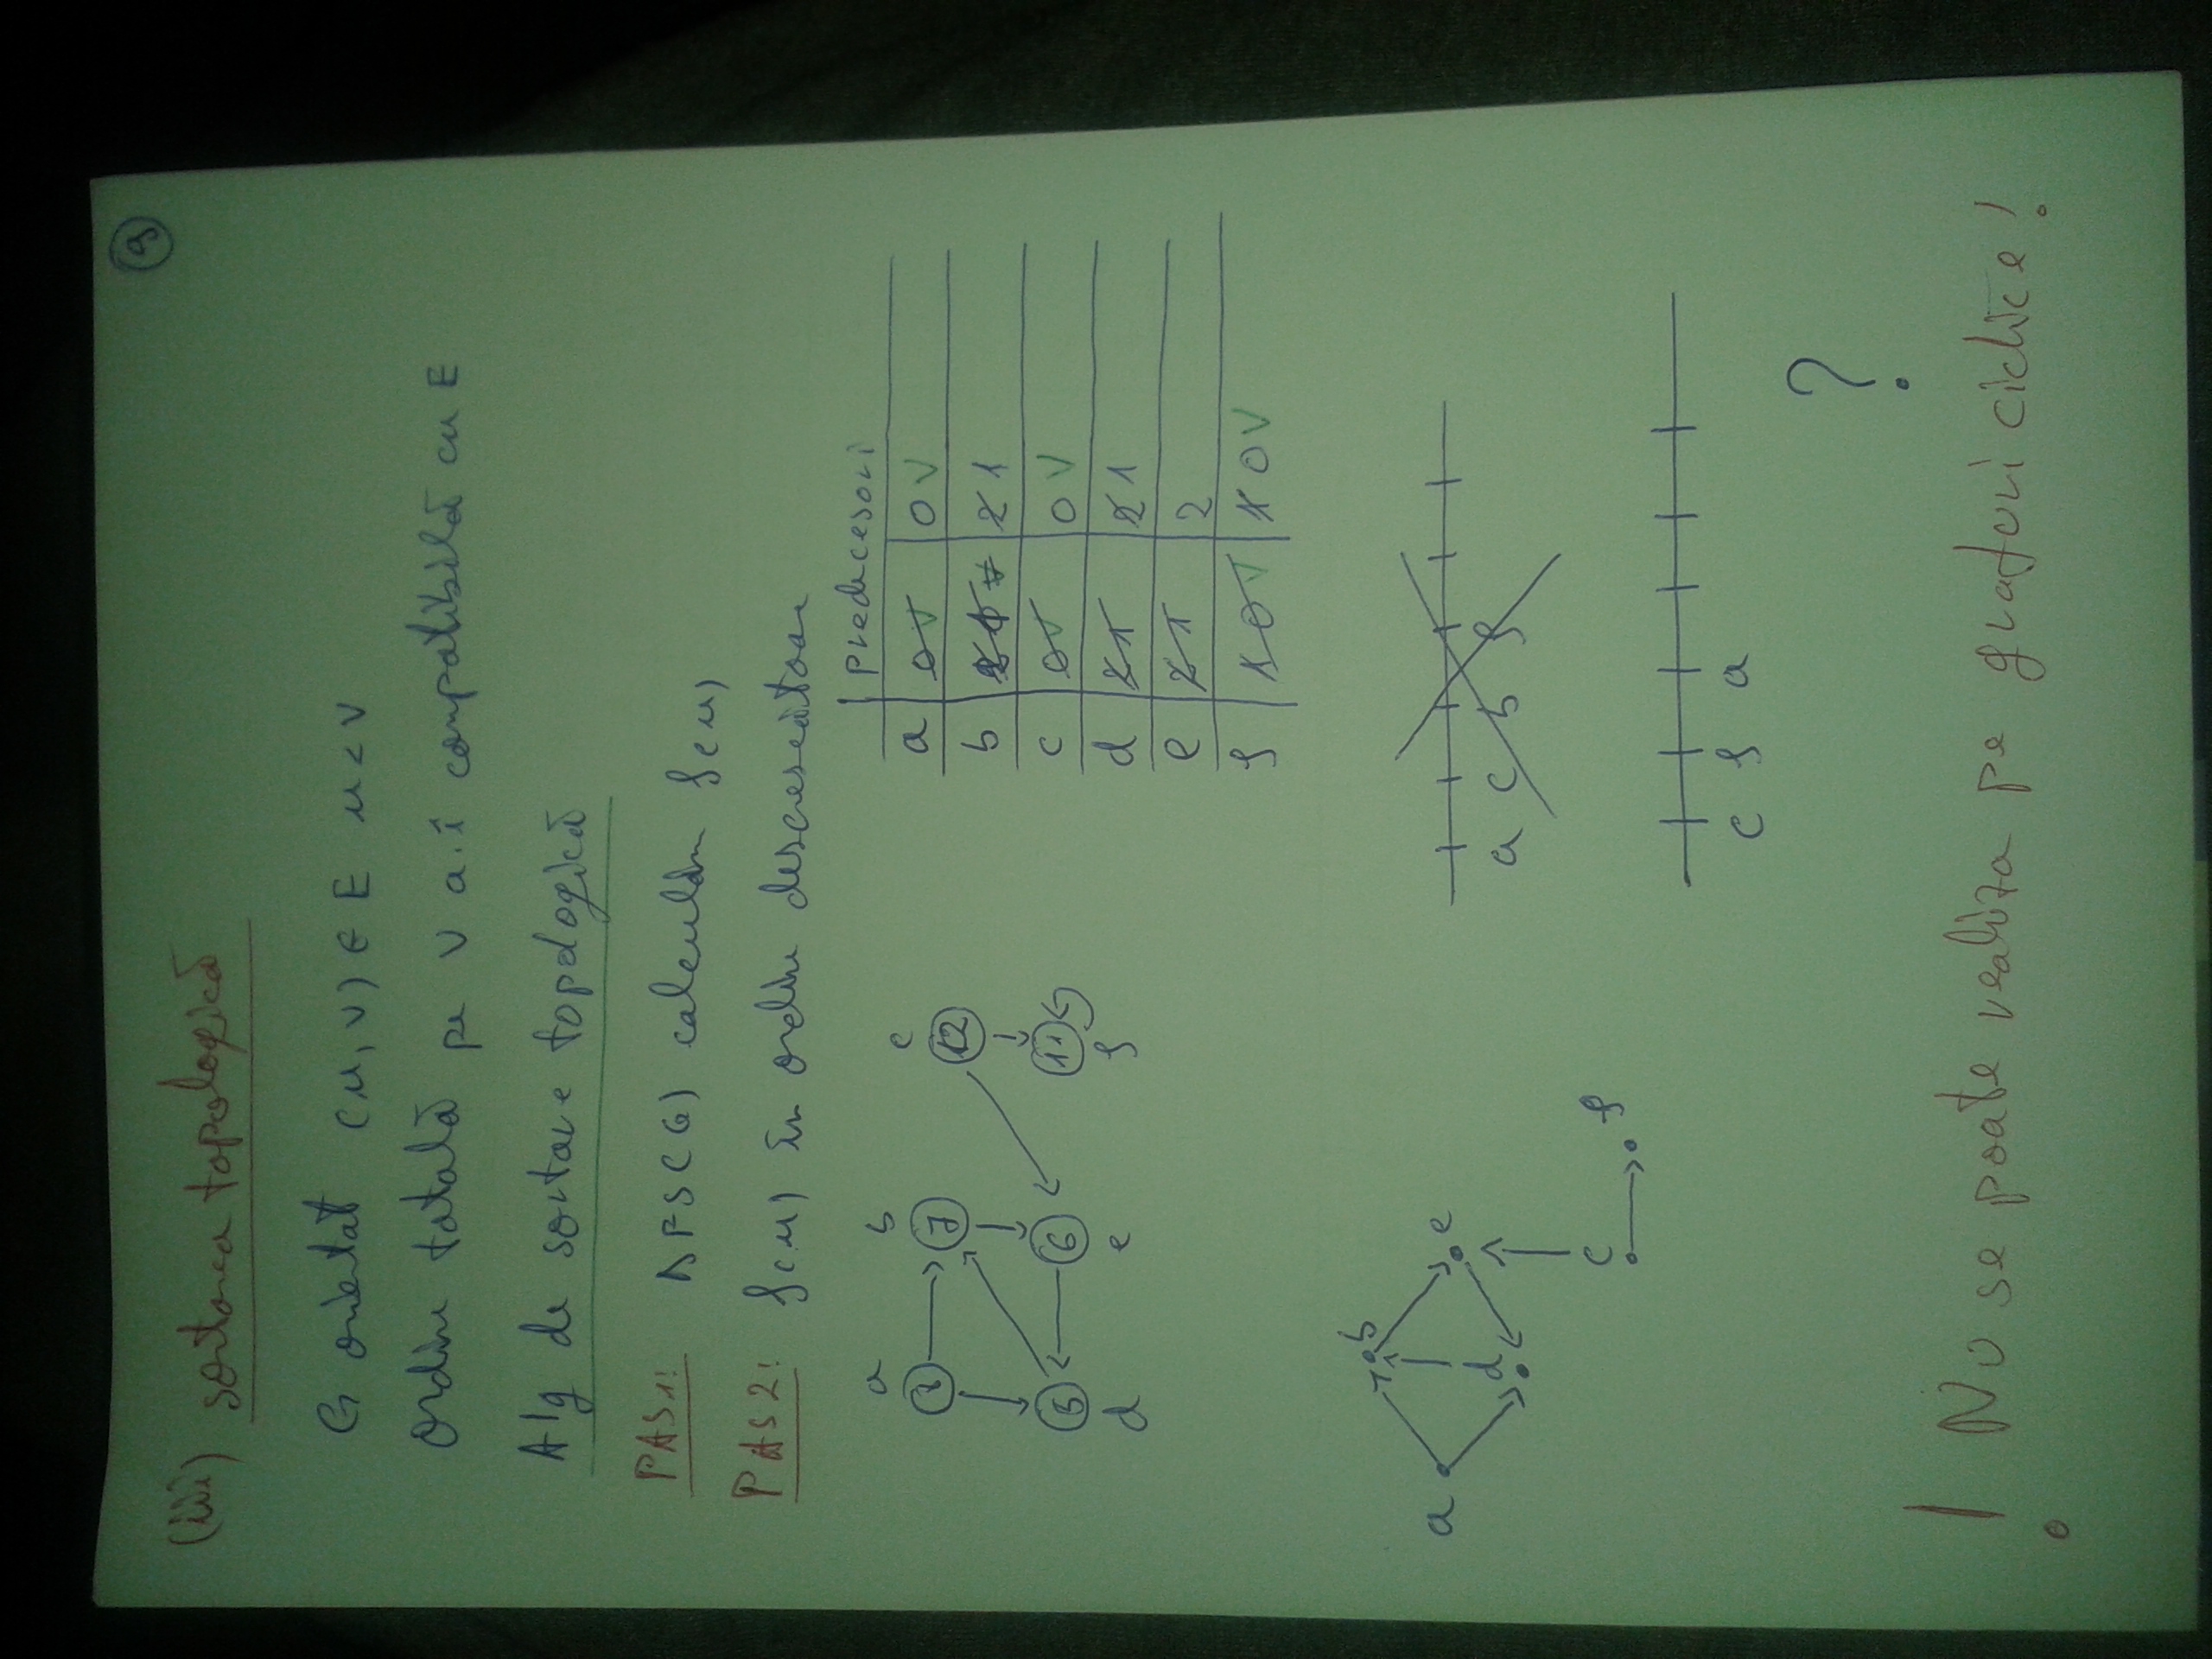 9
(iii) sortarea topologică
G orientat (u,v) ∈ E u < v
Ordine totală pe V a.î compatibilă cu E
Alg de sortare topologică
PAS1: DFS(G) calculăm f(u)
PAS2: f(u) în ordine descrescătoare
predecesori
a b c
12
d e f
6 11
a 0 V 0 V
b 2 1
c 0 V 0 V
d 2 1 2 1
e 2 1 2
f 1 0 V 1 0 V
b
a d e
c f
a c b f
c f a
?
! Nu se poate realiza pe grafuri ciclice!